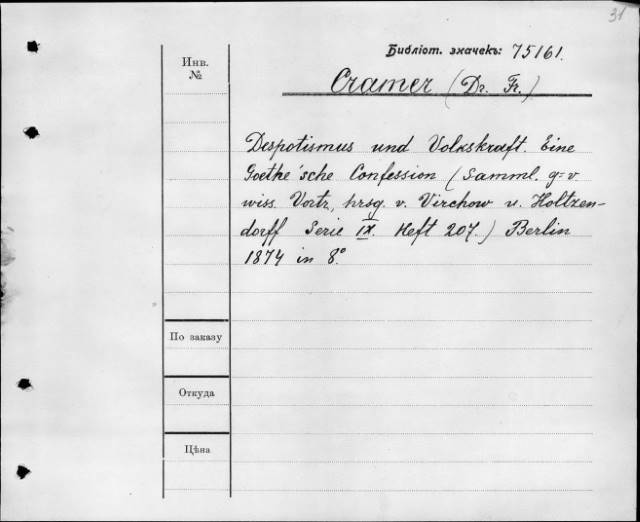 31
Библіот. значекъ: 75161.
Инв.
№
Cramer (Dr. Fr.)
Despotismus und Volkskraft. Eine
Goethe'sche Confession (Samml. g=v
wiss. Vortr, hrsg. v. Virchow u. Holtzen-
dorff Serie IX. Heft 207.) Berlin
1874 in 8°.
По заказу
Откуда
Цѣна